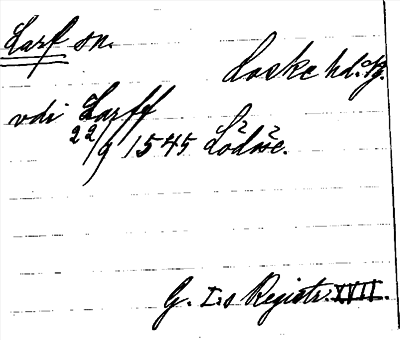 Larf sn.
Loske hd. og.
vdi Larff
22/9 1545 Lödöse.
G. I:s Registr. XVII.